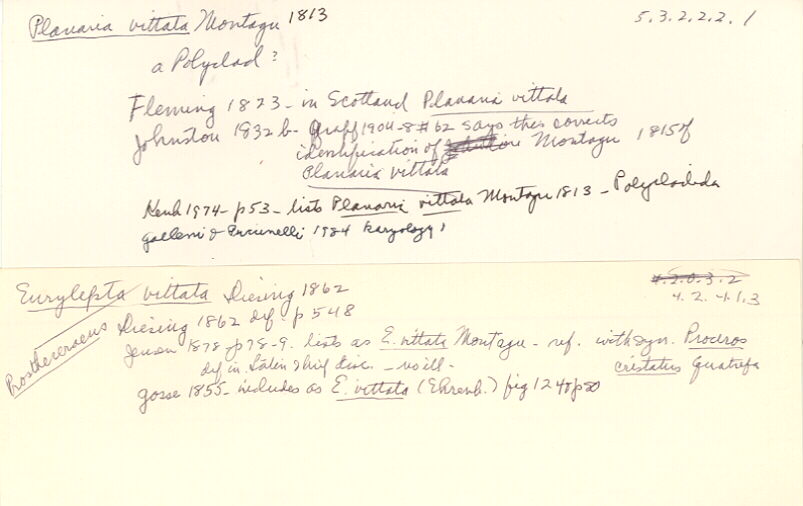 Planaria vittata Montagu 1813 5.3.2.2.2.1
a Polyclad?
Fleming 1823 - in Scotland Planaria vittata
Johnston 1832 b - Graff 1904-8 #62 says this corrects
identification of Montagu 1815 of
Planaria vittata
Kenk 1974 - p53 - lists Planaria vittata Montagu 1813 - Polycladida
Galleni & Puccinelli 1984 karyology
Eurylepta vittata Diesing 1862 4.2.0.3.2
4.2.4.1.3
Prostheceraeus
Diesing 1862 dif. p 548
Jensen 1878 p78-9. lists as E. vittata Montagu - ref. with syn. Proceros
dif in Latin & brief disc. - no ill - cristatus Quatrefa
Gosse 1855 - includes as E. vittata (Ehrenb.) fig 124 p 80